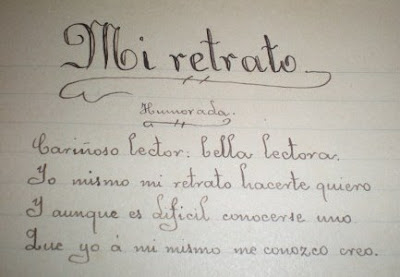 Mi retrato
Humorada.
Cariñoso lector: bella lectora.
Yo mismo mi retrato hacerte quiero
Y aunque es dificil conocerse uno
Que yo á mi mismo me conozco creo.